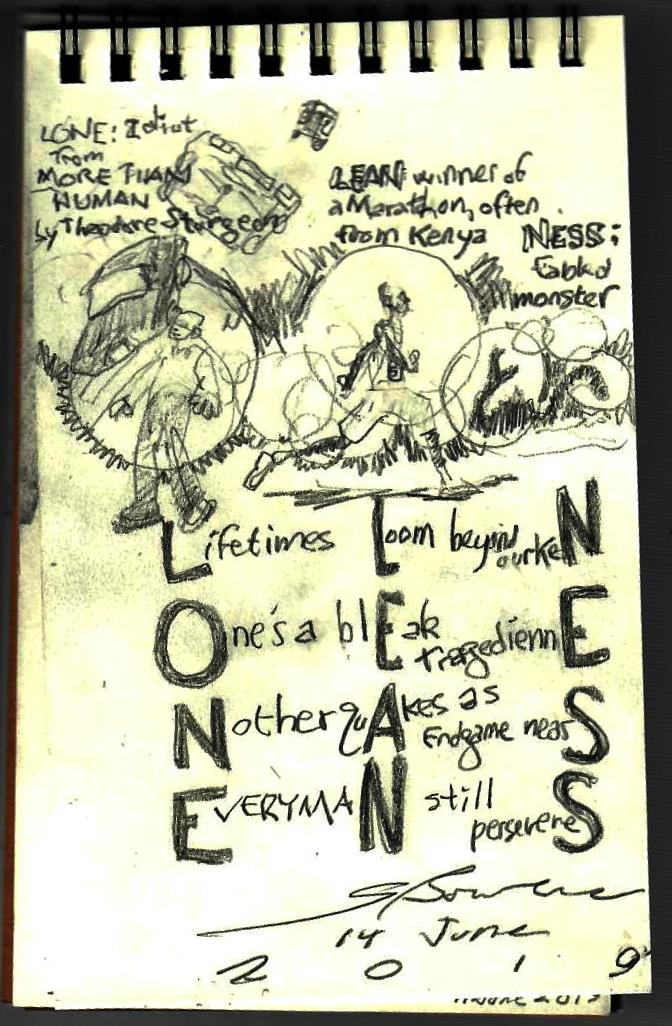 LONE: Idiot
from
MORE THAN
HUMAN
by Theodore Sturgeon
LEAN winner of
a Marathon, often
from Kenya
NESS:
fabled
monster
Lifetimes Loom beyond ourkeN
One's a blEak tragediennE
Nother quAkes as Endgame nearS
EVERYMAN still persevereS
14 June
2019